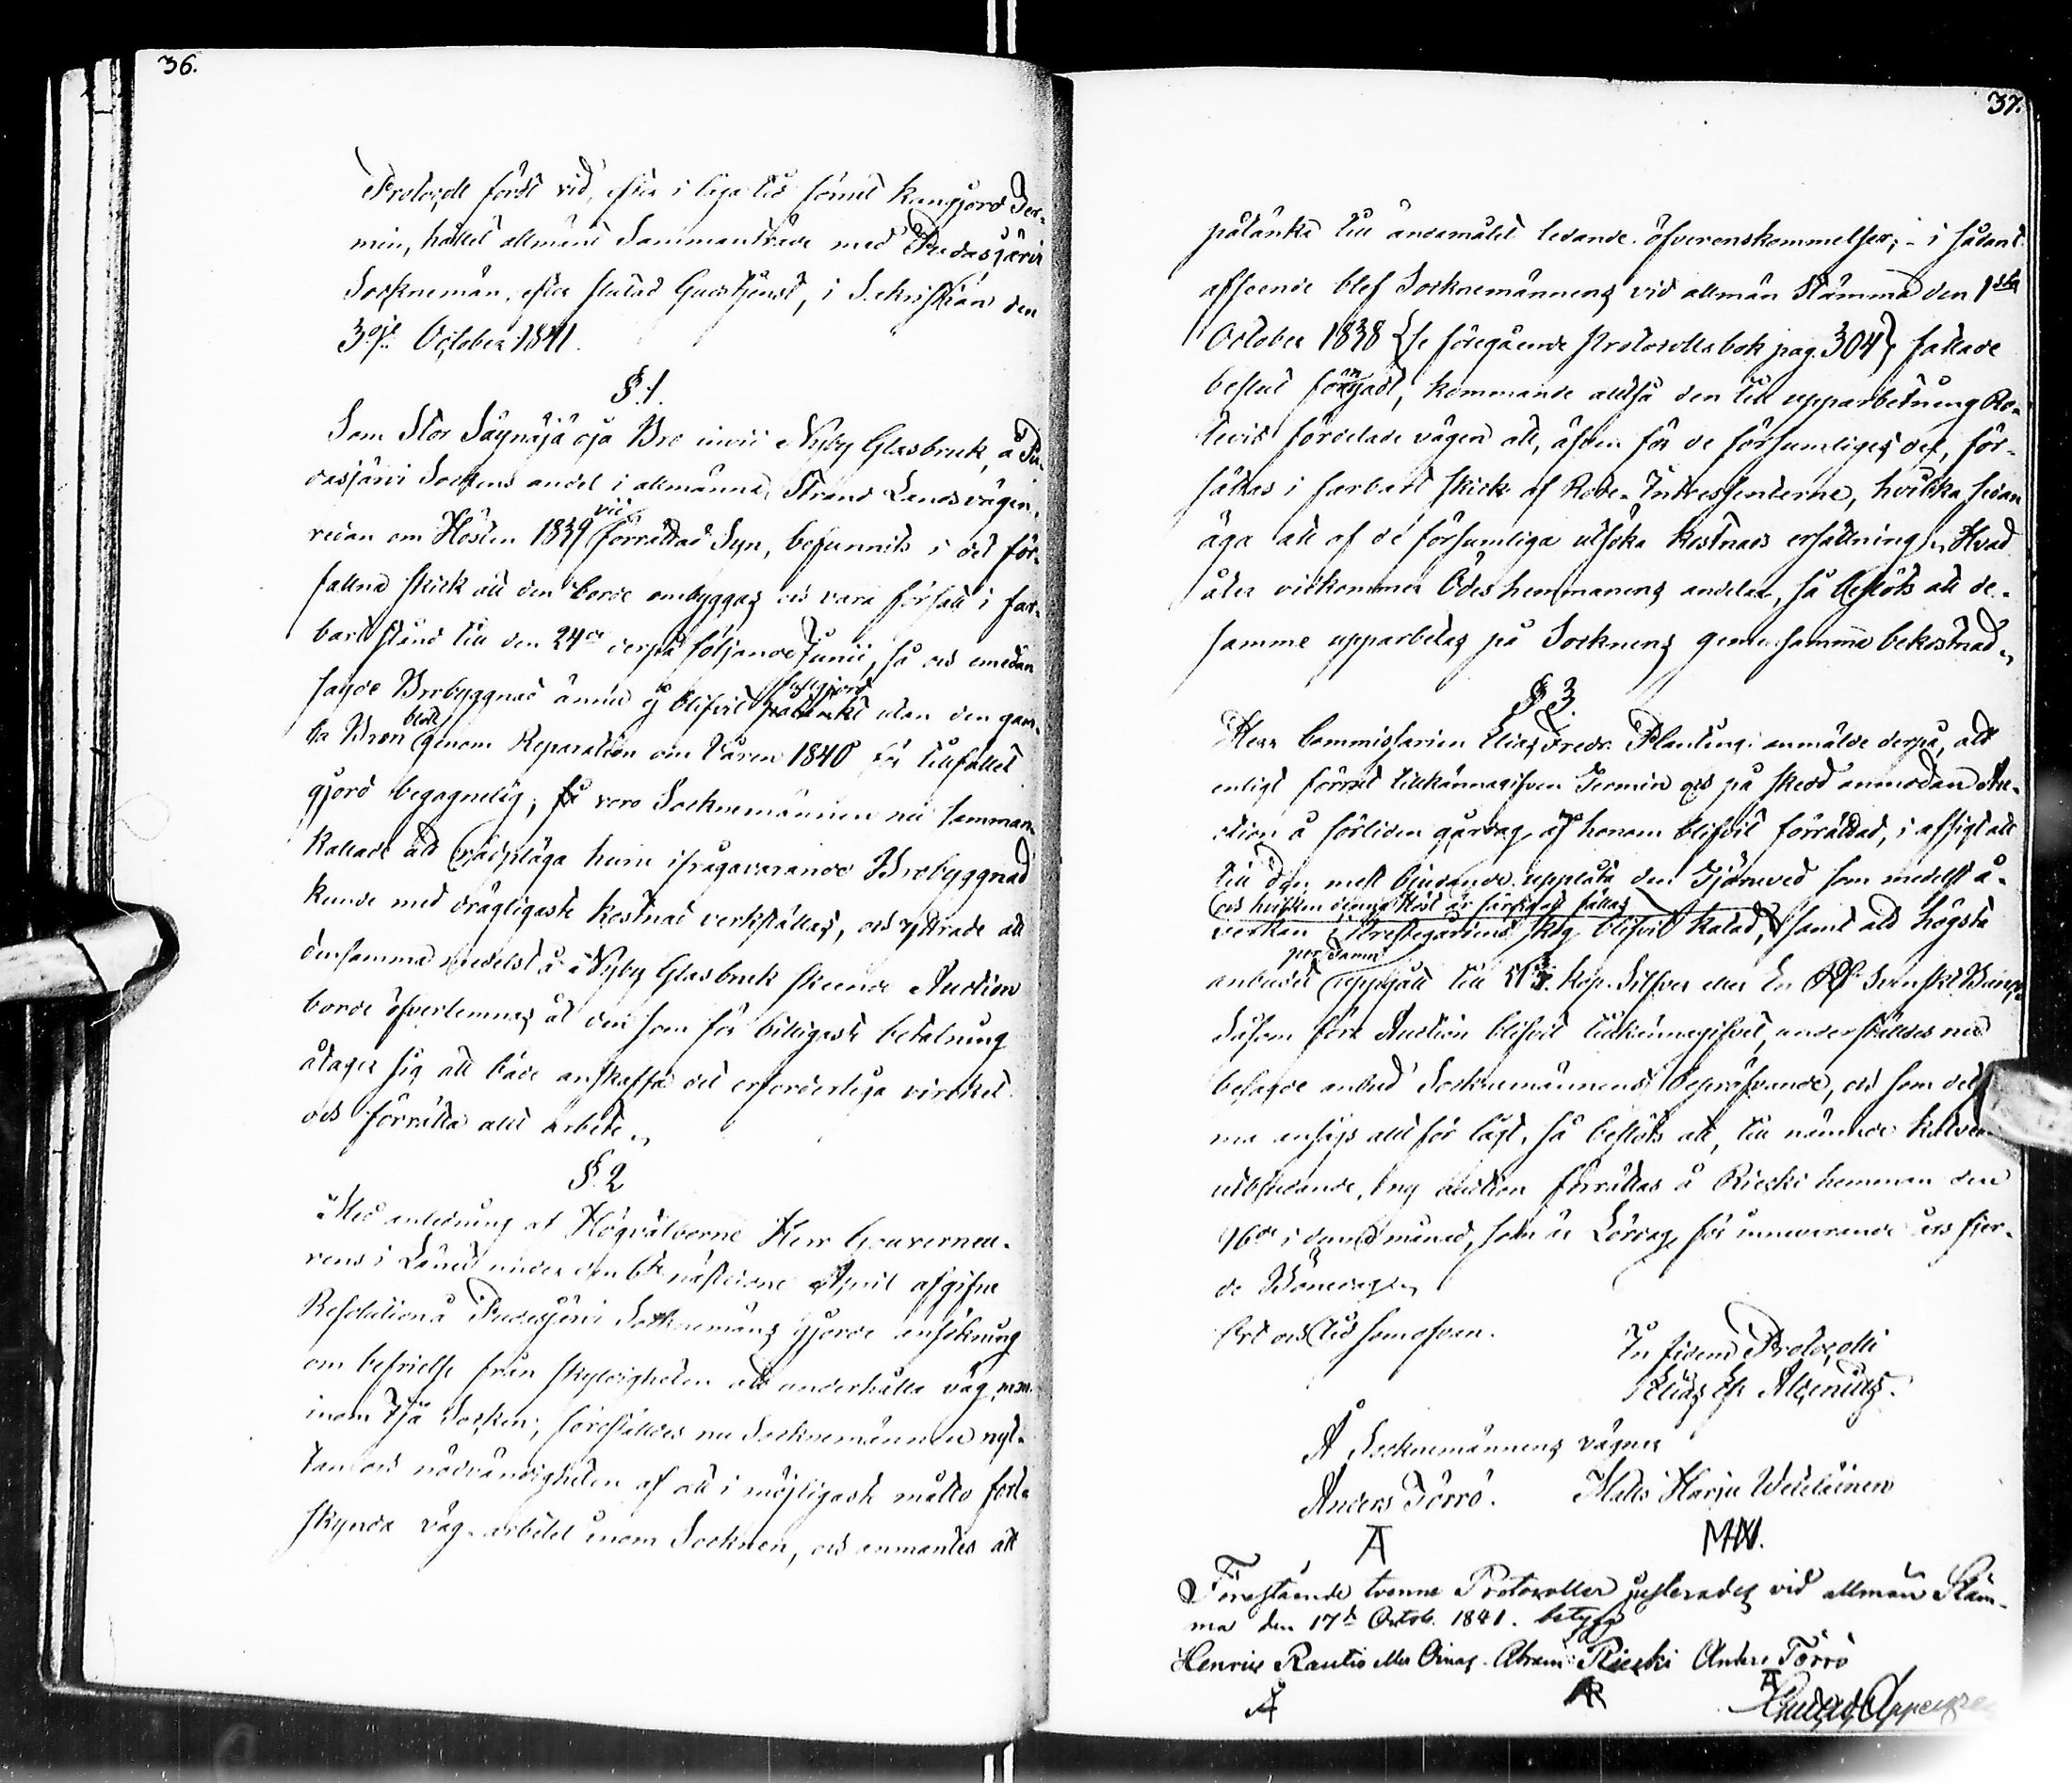 36.
Protocoll fördt vid, efter i laga tid förut kungjord Ter-
min, hållet allmänt Sammanträde med Pudasjärvi
Socknemän, efter slutad Gudstjenst, i Sakristian den
3dje October 1841.
§ 1.
Som Stor Säynäjä oja Bro invid Nyby Glasbruk, å Pu-
dasjärvi Sockens andel i allmänna Strand Landsvägen,
redan om Hösten 1839 vid förrättad Syn, befunnits i det för-
fallna skick att den borde ombyggas och vara försatt i far-
bart stånd till den 24de derpå följande Junii, så och emedan
sagde Brobyggnad ännu ej blifvit fullgjord utan den gam-
la Bron blott genom Reparation om Våren 1840 för tillfället
gjord begagnelig; så voro Socknemännen nu samman-
kallade att rådpläga huru ifrågavarande Brobyggnad
kunde med drägligaste kostnad verkställas, och yttrade att
densamma medelst å Nyby Glasbruk skeende Auction
borde öfverlemnas åt den som för billigaste betalning
åtager sig att både anskaffa det erforderliga virket
och förrätta allt arbete.
§ 2
Med anledning af Högvälborne Herr Gouverneu-
rens i Länet under den 6te nästledne April afgifne
Resolution å Pudasjärvi Socknemäns gjorde ansökning
om befrielse från skyldigheten att underhålla väg m.m.
inom Ijå Socken; föreställdes nu Socknemännen nyt-
tan och nödvändigheten af att i möjligaste måtto fort-
skynda väg-arbetet inom Socknen, och anmantes att
37.
påtänka till ändamålet ledande öfverenskommelser; - i sådant
afseende blef Socknemännens vid allmän Stämma den 1sta
October 1838 (se föregående Protocollsbok pag. 304) fattade
beslut förnyadt, kommande alltså den till upparbetning Ro-
tevis fördelade vägen att, äfven för de försumliges del, för-
sättas i farbart skick af Rote-Intressenterne, hvilka sedan
äga att af de försumliga utsöka kostnads ersättning. Hvad
åter vidkommer Ödeshemmanens andelar, så beslöts att de-
samme upparbetas på Socknens gemensamma bekostnad.
§ 3.
Herr Commissarien Elias Fredr. Planting anmälde derpå, att
enligt förut tillkännagifven Termin och på skedd anmodan Au-
ction å förliden gårdag af honom blifvit förrättad, i afsigt att
till den mest bjudande upplåta den Tjäruved som medelst å-
verkan i Prestegårdens skog blifvit katad, och hvilken denna Höst är färdig att fällas samt att högsta
anbudet per Famn uppgått till kop. Silfver eller En Rd Svenskt Banco
Såsom före Auction blifvit tillkännagifvet, underställdes nu
besagde anbud Socknemännens bepröfvande, och som det
ma ansågs allt för lågt, så beslöts att, till nämnde katved
utbjudande, ny Auction förrättas å Rieski hemman den
16de i denna månad, som är Lördag för innevarande års fjer-
de Bönedag.
Ort och tid som ofvan.
In fidem Protocolli
Elias Alcenius.
Å Socknemännens vägnar
Anders Törrö. Matts Harju Wäteläinen
A MHW.
Förestående tvenne Protocoller justerades vid allmän Stäm-
ma den 17de Octob. 1841. betyga
Henric Rautio eller Oinas. Abram Rieski Anders Törrö
A AR A